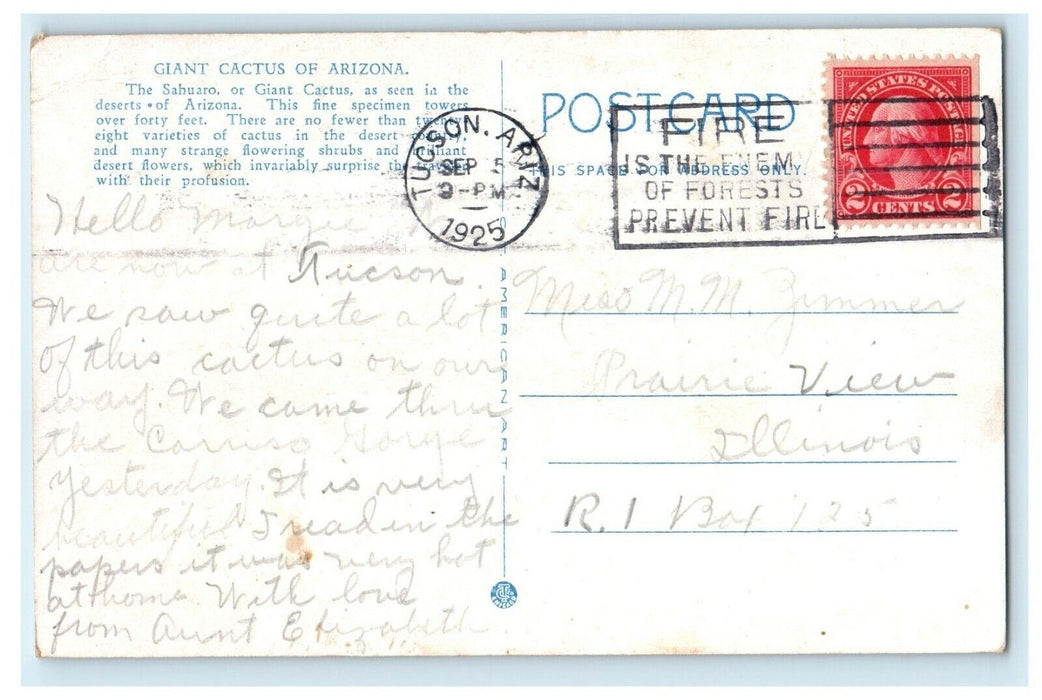 GIANT CACTUS OF ARIZONA.
The Sahuaro, or Giant Cactus, as seen in the
deserts of Arizona. This fine specimen towers
over forty feet. There are no fewer than twenty
eight varieties of cactus in the desert
and many strange flowering shrubs and brilliant
desert flowers, which invariably surprise the
with their profusion.
Hello Margie
are now at Tucson.
We saw quite a lot
of this cactus on our
way. We came thru
the Carriso Gorge
Yesterday. It is very
beautiful I read in the
papers it was very hot
at home With love
from Aunt Elizabeth
TUCSON, ARIZ.
SEP 5
3-PM
1925
POSTCARD
THIS SPACE FOR ADDRESS ONLY.
FIRE
IS THE ENEMY
OF FORESTS
PREVENT FIRE
UNITED STATES POSTAGE
2 CENTS 2
AMERICAN ART
Miss M. M. Zimmer
Prairie View
Illinois
R. 1 Box 135